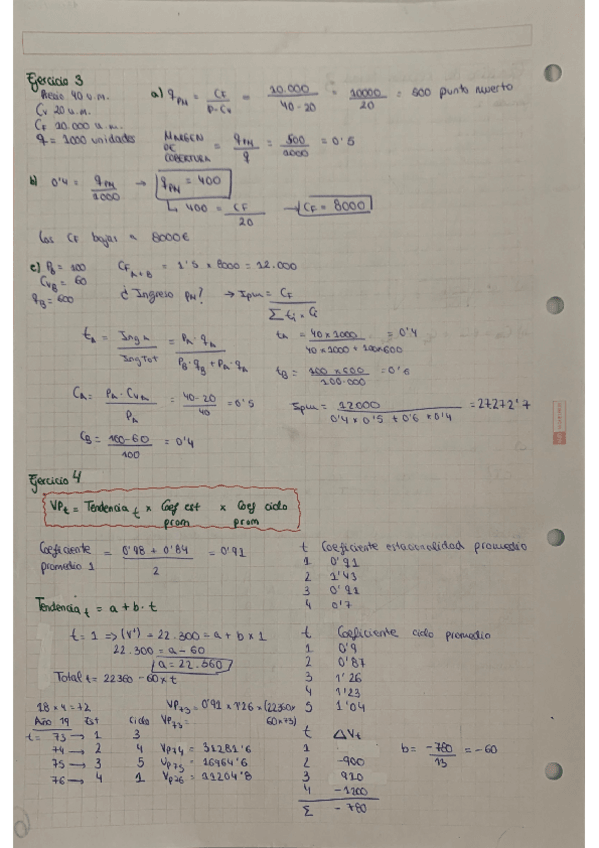 Ejercicio 3
Precio 40 u.m.
Cv 20 u.m.
CF 10.000 u.m.
q = 1000 unidades
a) qPM = CF / P-Cv = 10.000 / 40-20 = 10000 / 20 = 500 punto muerto
MARGEN DE COBERTURA = qPM / q = 500 / 1000 = 0'5
b) 0'4 = qPM / 1000 → qPM = 400
↳ 400 = CF / 20 → CF = 8000
Los CF bajas a 8000€
c) PB = 100
CVB = 60
qB = 600
CF A+B = 1'5 x 8000 = 12.000
¿Ingreso PM? → Ipm = CF / Σ ti · Ci
tA = Ing A / Ing Tot = PA · qA / PB · qB + PA · qA
tA = 40x1000 / 40x1000 + 100x600 = 0'4
tB = 100x600 / 100.000 = 0'6
CA = PA - CVA / PA = 40-20 / 40 = 0'5
Ipm = 12000 / 0'4 x 0'5 + 0'6 x 0'4 = 27272'7
CB = 100-60 / 100 = 0'4
Ejercicio 4
VPt = Tendencia t x Coef est prom x Coef ciclo prom
Coeficiente promedio 1 = 0'98 + 0'84 / 2 = 0'91
t Coeficiente estacionalidad promedio
1 0'91
2 1'43
3 0'91
4 0'7
Tendencia t = a + b · t
t = 1 => (V') = 22.300 = a + b x 1
22.300 = a - 60
a = 22.360
Total t = 22360 - 60 x t
t Coeficiente ciclo promedio
1 0'9
2 0'87
3 1'26
4 1'23
5 1'04
18 x 4 = 72
Año 19 Est Ciclo
t = 73 → 1 3
74 → 2 4
75 → 3 5
76 → 4 1
VP73 = 0'91 x 1'26 x (22360 - 60x73)
VP73 =
VP74 = 31281'6
VP75 = 16964'6
VP76 = 11204'8
t ΔVt
1
2 -900
3 920
4 -1200
Σ -780
b = -780 / 13 = -60